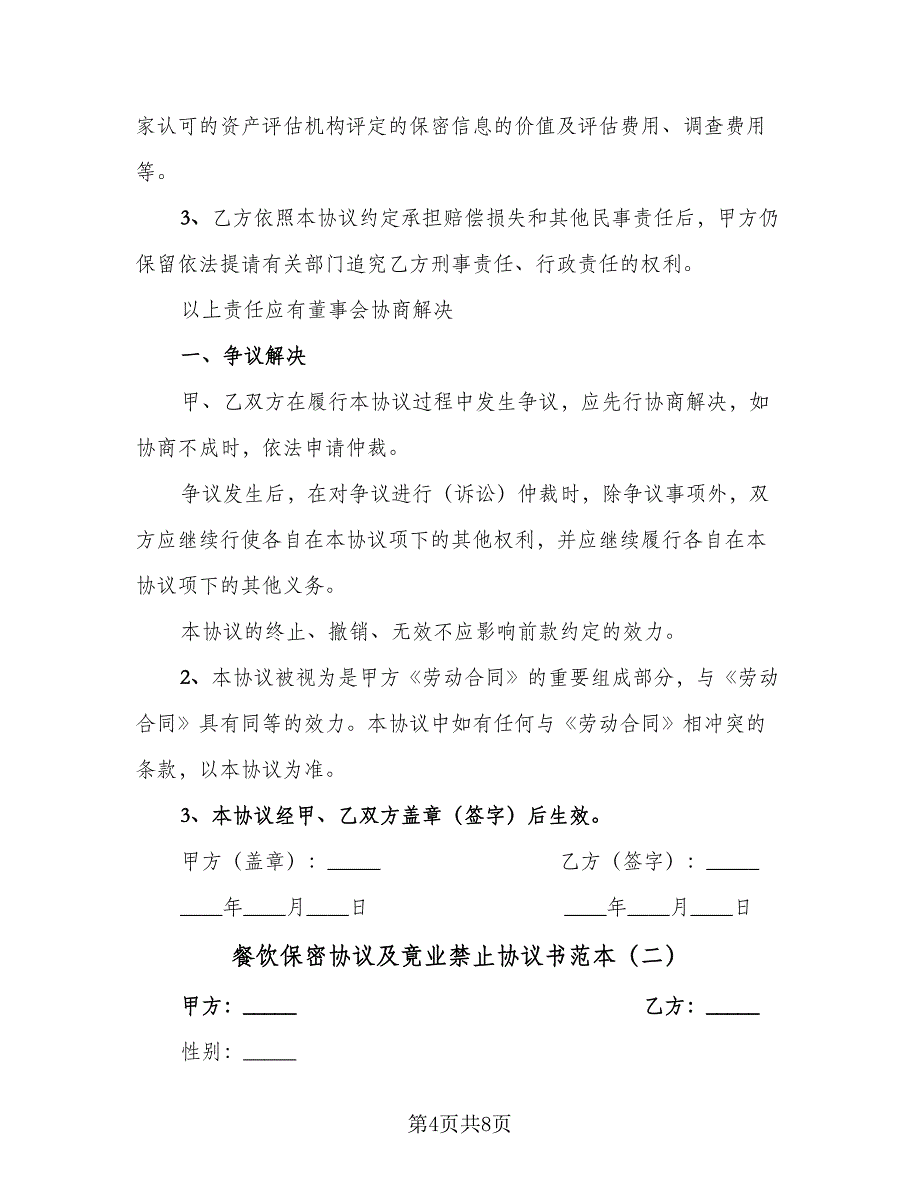 家认可的资产评估机构评定的保密信息的价值及评估费用、调查费用
等。
3、乙方依照本协议约定承担赔偿损失和其他民事责任后，甲方仍
保留依法提请有关部门追究乙方刑事责任、行政责任的权利。
以上责任应有董事会协商解决
一、争议解决
甲、乙双方在履行本协议过程中发生争议，应先行协商解决，如
协商不成时，依法申请仲裁。
争议发生后，在对争议进行（诉讼）仲裁时，除争议事项外，双
方应继续行使各自在本协议项下的其他权利，并应继续履行各自在本
协议项下的其他义务。
本协议的终止、撤销、无效不应影响前款约定的效力。
2、本协议被视为是甲方《劳动合同》的重要组成部分，与《劳动
合同》具有同等的效力。本协议中如有任何与《劳动合同》相冲突的
条款，以本协议为准。
3、本协议经甲、乙双方盖章（签字）后生效。
甲方（盖章）：_____ 乙方（签字）：_____
____年____月____日 ____年____月____日
餐饮保密协议及竟业禁止协议书范本（二）
甲方：_____ 乙方：_____
性别：_____
第4页共8页